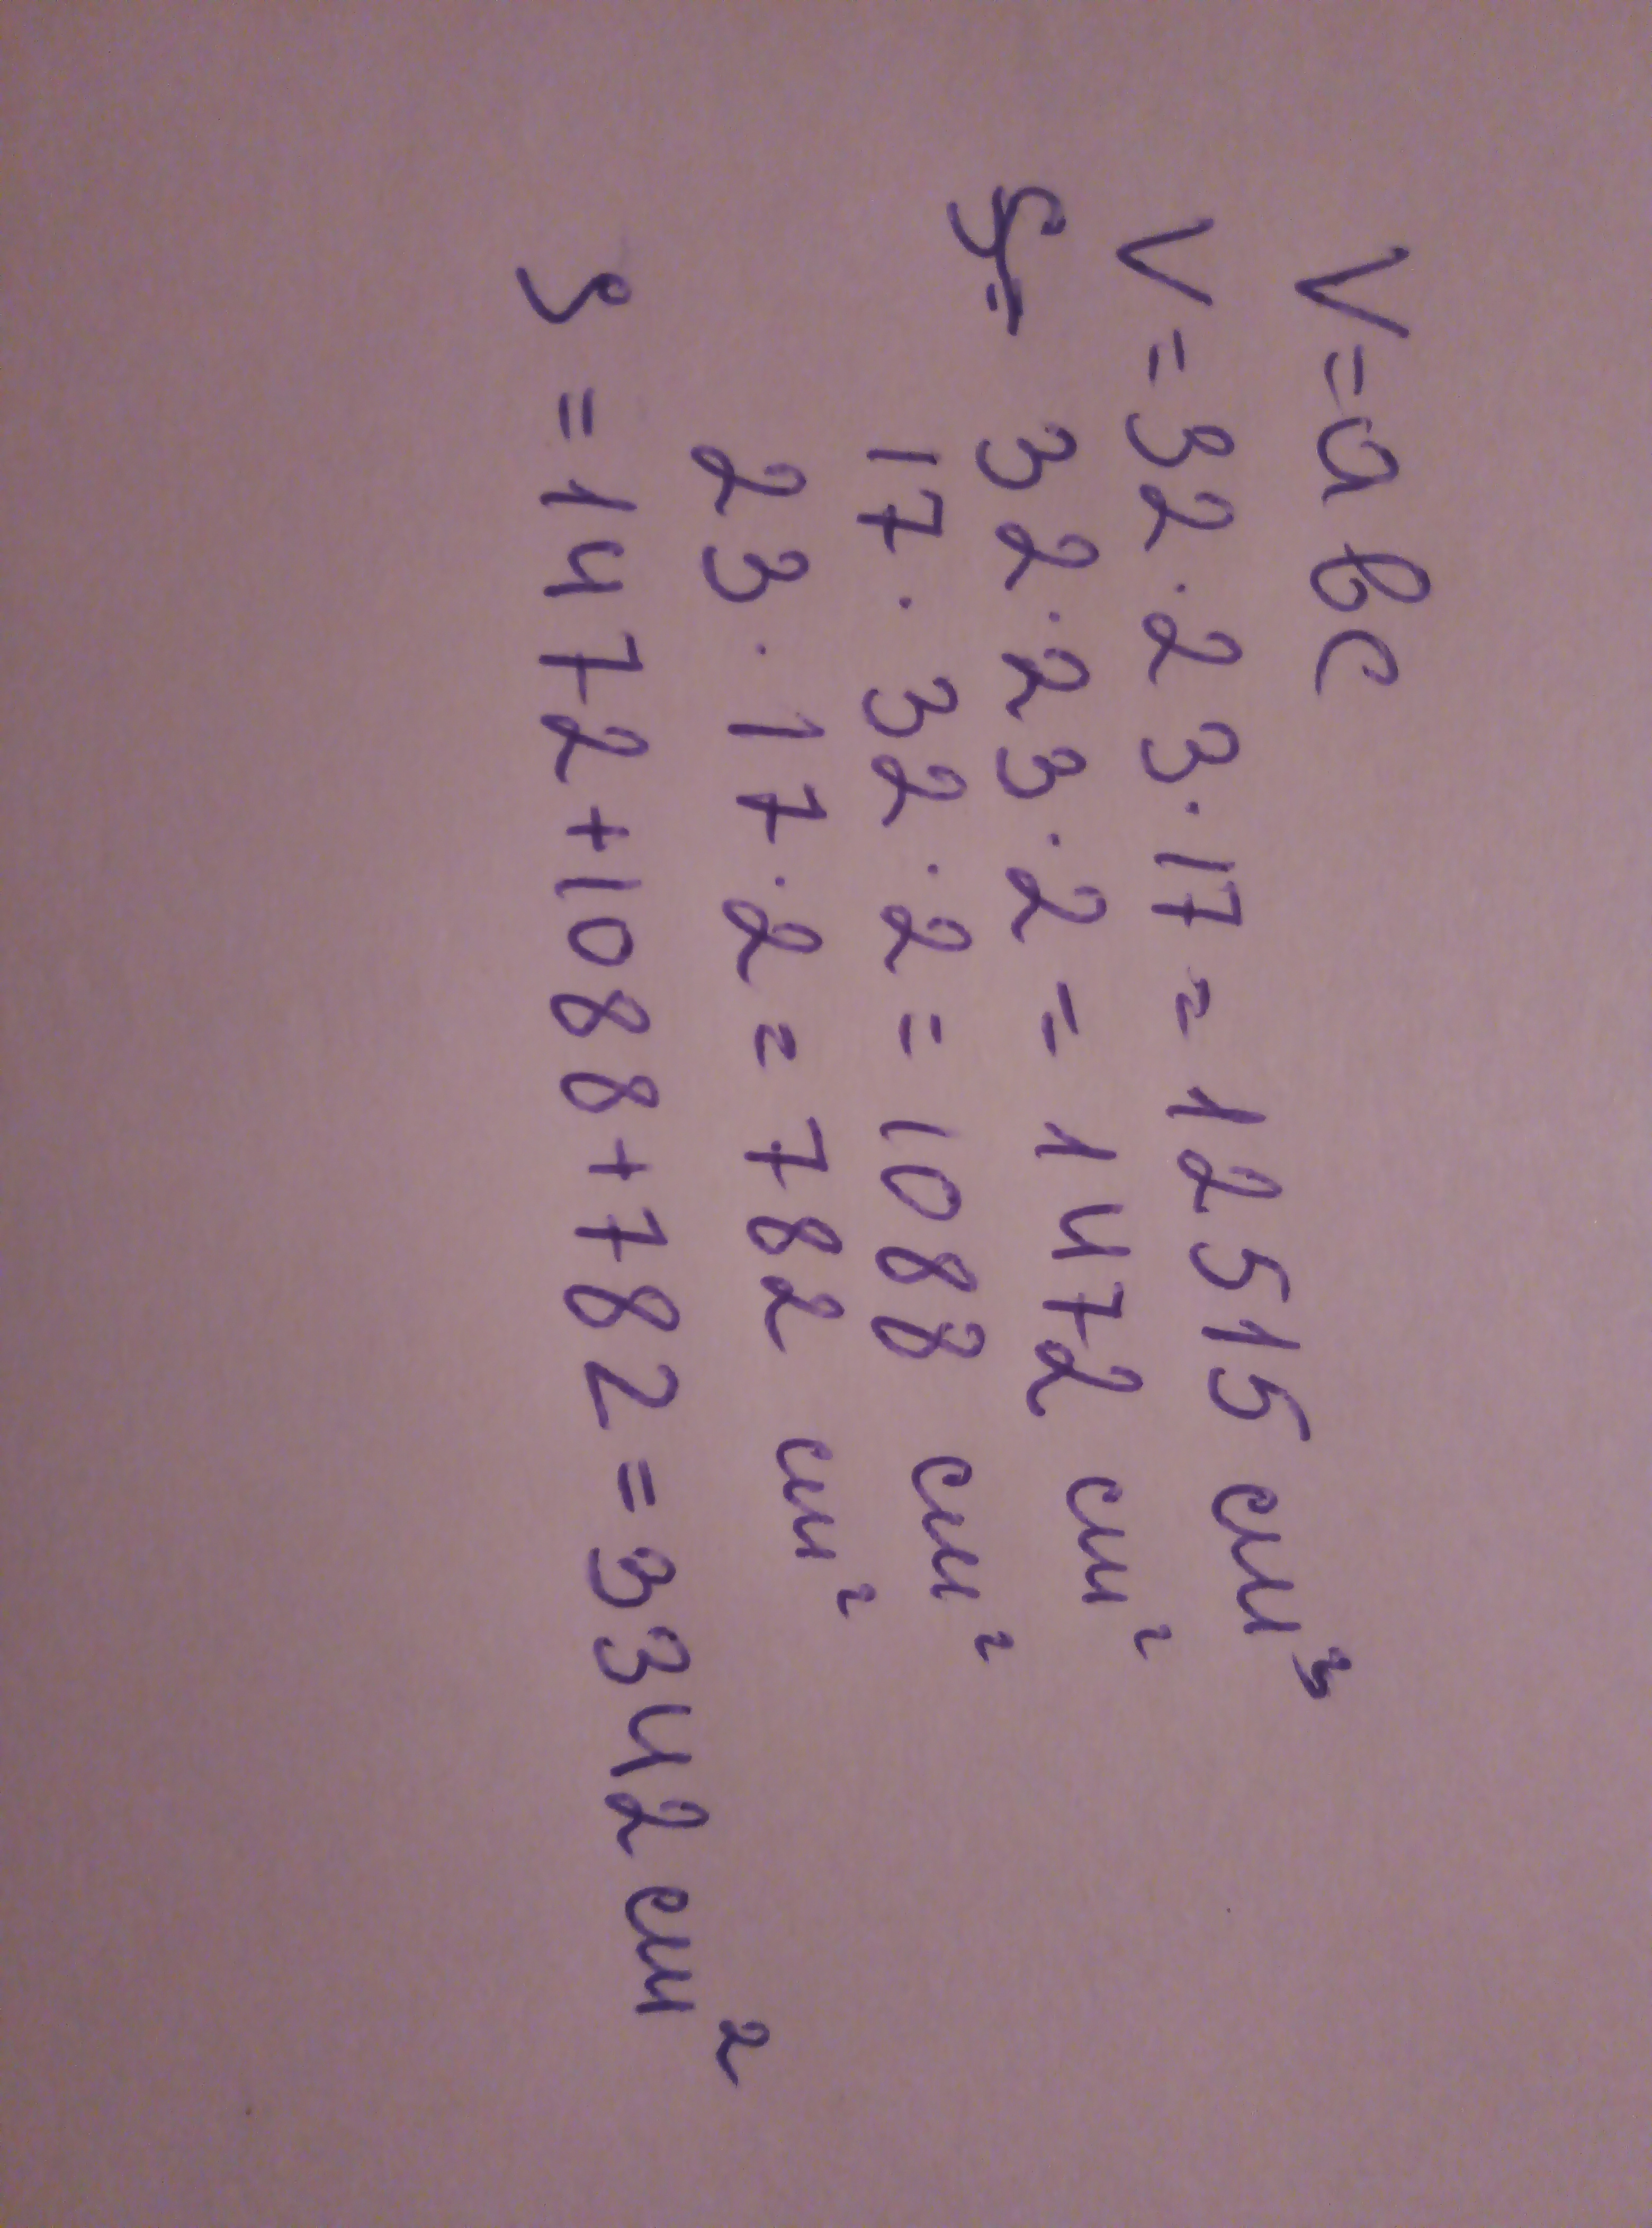 V=aвc
V=32·23·17=12515 см³
32·23·2=1472 см²
17·32·2=1088 см²
23·17·2=782 см²
S=1472+1088+782=3342 см²